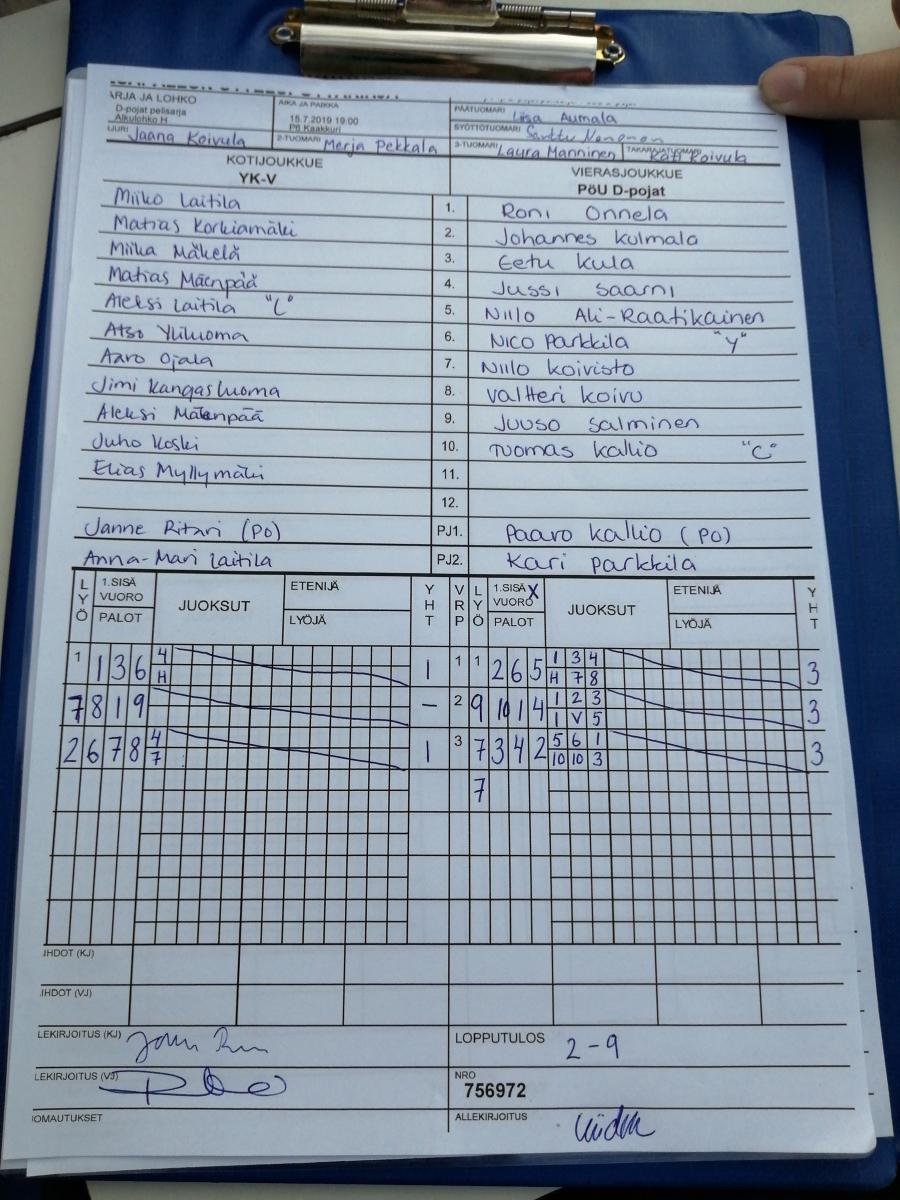 ARJA JA LOHKO
D-pojat pelisarja
Alkulohko H
AIKA JA PAIKKA
15.7.2019 19:00
Pö Kaakkuri
PÄÄTUOMARI Liisa Aumala
SYÖTTÖTUOMARI Santtu
UURI Jaana Koivula
2-TUOMARI Merja Pekkala
3-TUOMARI Laura Manninen
TAKARAJATUOMARI Kati Koivula
KOTIJOUKKUE
YK-V
VIERASJOUKKUE
PöU D-pojat
Miiko Laitila 1. Roni Onnela
Matias Korkiamäki 2. Johannes Kulmala
Miika Mäkelä 3. Eetu Kula
Matias Mäenpää 4. Jussi Saarni
Aleksi Laitila "C" 5. Niilo Ali-Raatikainen
Atso Yliluoma 6. Nico Parkkila "V"
Aaro Ojala 7. Niilo Koivisto
Jimi Kangasluoma 8. Valtteri Koivu
Aleksi Mäenpää 9. Juuso Salminen
Juho Koski 10. Tuomas Kallio "C"
Elias Myllymäki 11.
12.
Janne Ritari (PO) PJ1. Paavo Kallio (PO)
Anna-Mari Laitila PJ2. Kari Parkkila
LYÖ 1.SISÄ VUORO PALOT JUOKSUT ETENIJÄ LYÖJÄ YHT VRP LYÖ 1.SISÄ VUORO X PALOT JUOKSUT ETENIJÄ LYÖJÄ YHT
1 1 3 6 4 1 1 1 2 6 5 1 3 4 3
H H 7 8
7 8 1 9 – 2 9 10 1 4 1 2 3 3
1 V 5
2 6 7 8 4 1 3 7 3 4 2 5 6 1 3
7 10 10 3
7
IHDOT (KJ)
IHDOT (VJ)
LEKIRJOITUS (KJ)
LOPPUTULOS 2-9
LEKIRJOITUS (VJ)
NRO
756972
IOMAUTUKSET
ALLEKIRJOITUS